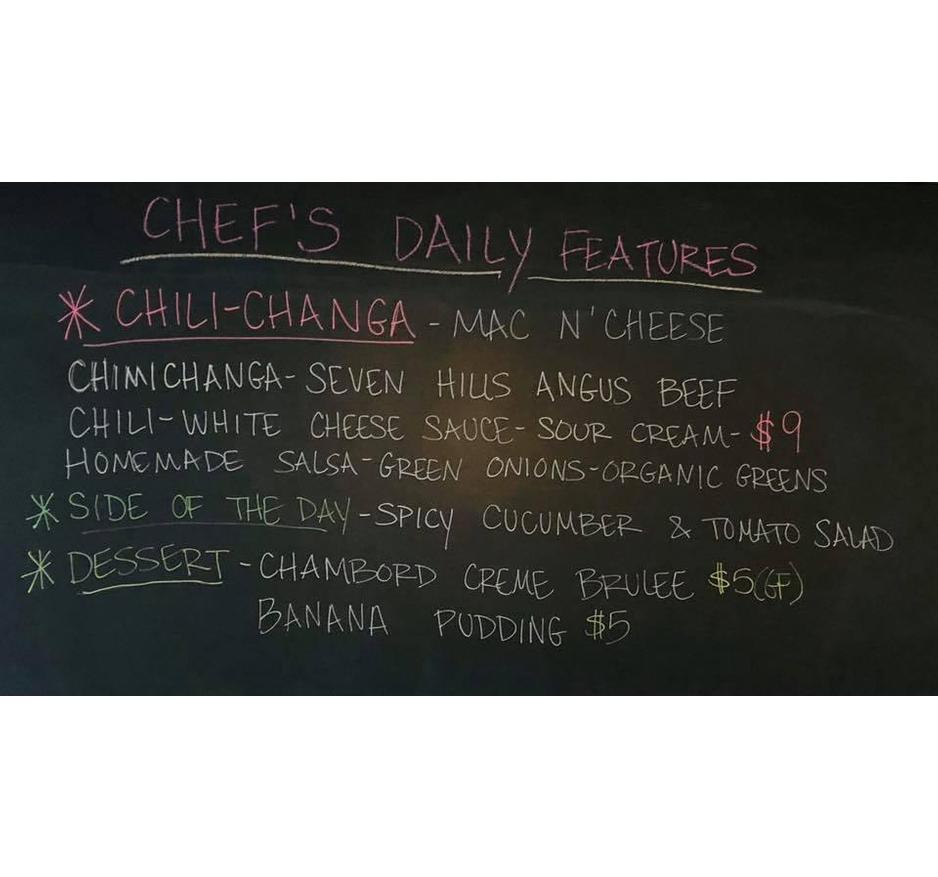 CHEF'S DAILY FEATURES
* CHILI-CHANGA - MAC N' CHEESE
CHIMICHANGA- SEVEN HILLS ANGUS BEEF
CHILI-WHITE CHEESE SAUCE- SOUR CREAM- $9
HOMEMADE SALSA-GREEN ONIONS-ORGANIC GREENS
* SIDE OF THE DAY -SPICY CUCUMBER & TOMATO SALAD
* DESSERT -CHAMBORD CREME BRULEE $5(GF)
BANANA PUDDING $5